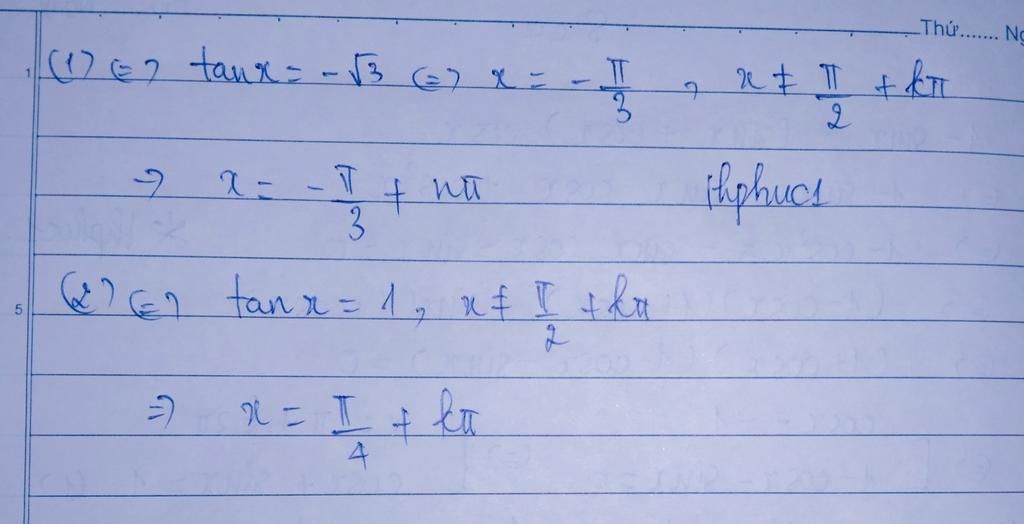 Thứ....... Ng
1 (1) ⇔ tan x = -√3 ⇔ x = -π/3 , x ≠ π/2 + kπ
→ x = -π/3 + nπ thphuc1
5 (2) ⇔ tan x = 1, x ≠ π/2 + kπ
⇒ x = π/4 + kπ